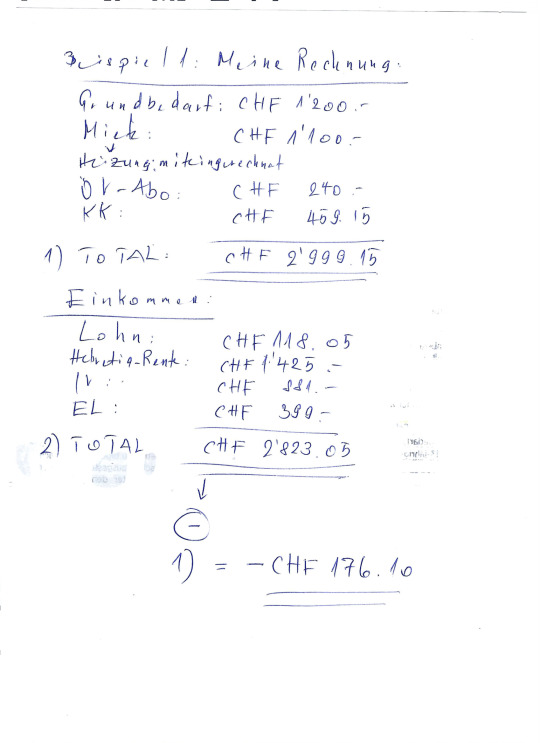 Beispiel 1: Meine Rechnung:
Grundbedarf: CHF 1'200.-
Miete: CHF 1'100.-
Heizung miteingerechnet
ÖV-Abo: CHF 240.-
KK: CHF 459.15
1) TOTAL: CHF 2'999.15
Einkommen:
Lohn: CHF 118.05
Helvetia-Rente: CHF 1'425.-
IV: CHF 881.-
EL: CHF 399.-
2) TOTAL CHF 2'823.05
↓
-
1) = -CHF 176.10